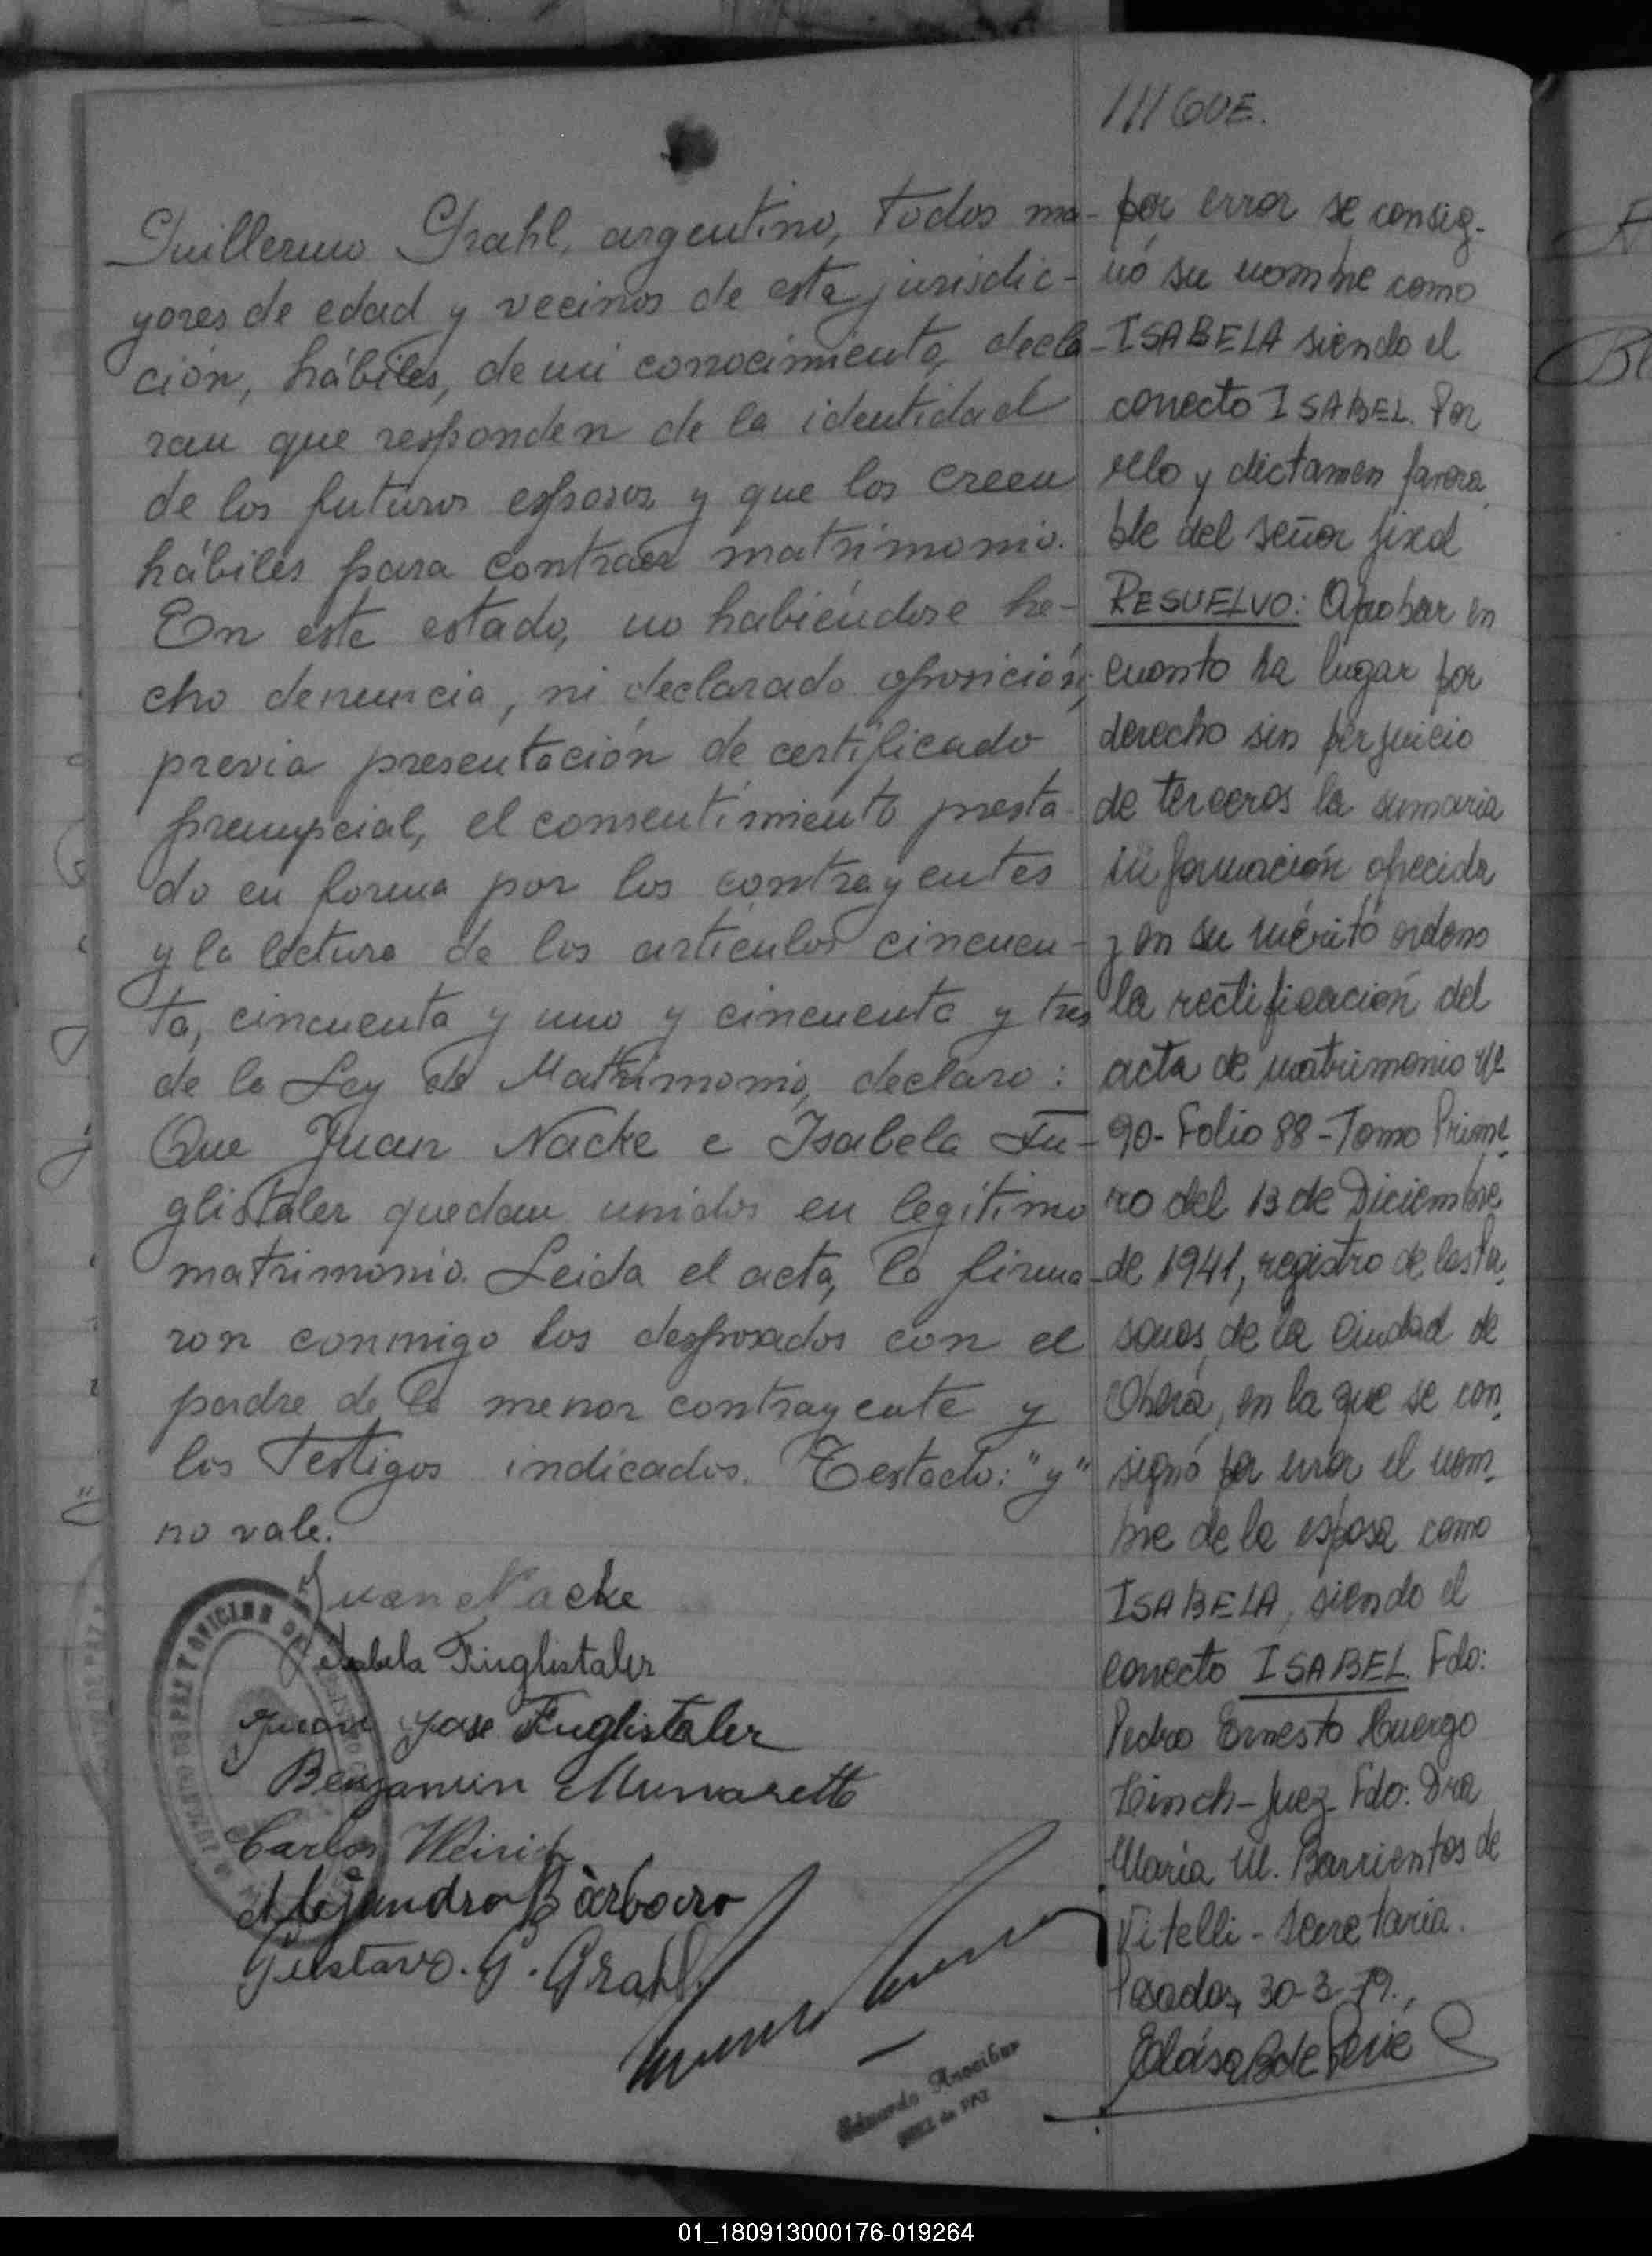 Guillermo Grahl, argentino, todos ma-
yores de edad y vecinos de esta jurisdic-
ción, hábiles, de mi conocimiento, decla-
ran que responden de la identidad
de los futuros esposos y que los creen
hábiles para contraer matrimonio.
En este estado, no habiéndose he-
cho denuncia, ni declarado oposición,
previa presentación de certificado
prenupcial, el consentimiento presta-
do en forma por los contrayentes
y la lectura de los artículos cincuen-
ta, cincuenta y uno y cincuenta y tres
de la Ley de Matrimonio, declaro:
Que Juan Nacke e Isabela Fu-
glistaler quedan unidos en legítimo
matrimonio. Leida el acta, la firma-
ron conmigo los desposados con el
padre de la menor contrayente y
los testigos indicados. Testado: "y"
no vale.
Juan Nacke
Isabela Füglistaler
Juan Jose Fuglistaler
Benjamin Munaretto
Carlos
Alejandro Bàrbaro
Gustavo. G. Grahl.
Eduardo
JUEZ de PAZ
III QUE.
por error se consig-
nó su nombre como
ISABELA siendo el
correcto ISABEL. Por
ello y dictamen favora
ble del señor fiscal
RESUELVO: Aprobar en
cuanto ha lugar por
derecho sin perjuicio
de terceros la sumaria
información ofrecida
y en su mérito ordeno
la rectificación del
acta de matrimonio Nº
90-Folio 88-Tomo Prime
ro del 13 de Diciembre
de 1941, registro de las Per
sonas, de la Ciudad de
Oberá, en la que se con
signó por error el nom-
bre de la esposa como
ISABELA, siendo el
correcto ISABEL. Fdo:
Pedro Ernesto Cuergo
Linch-Juez-Fdo: Dra
María M. Barrientos de
Vitelli-Secretaria.
Posadas, 30-3-79.,
01_180913000176-019264